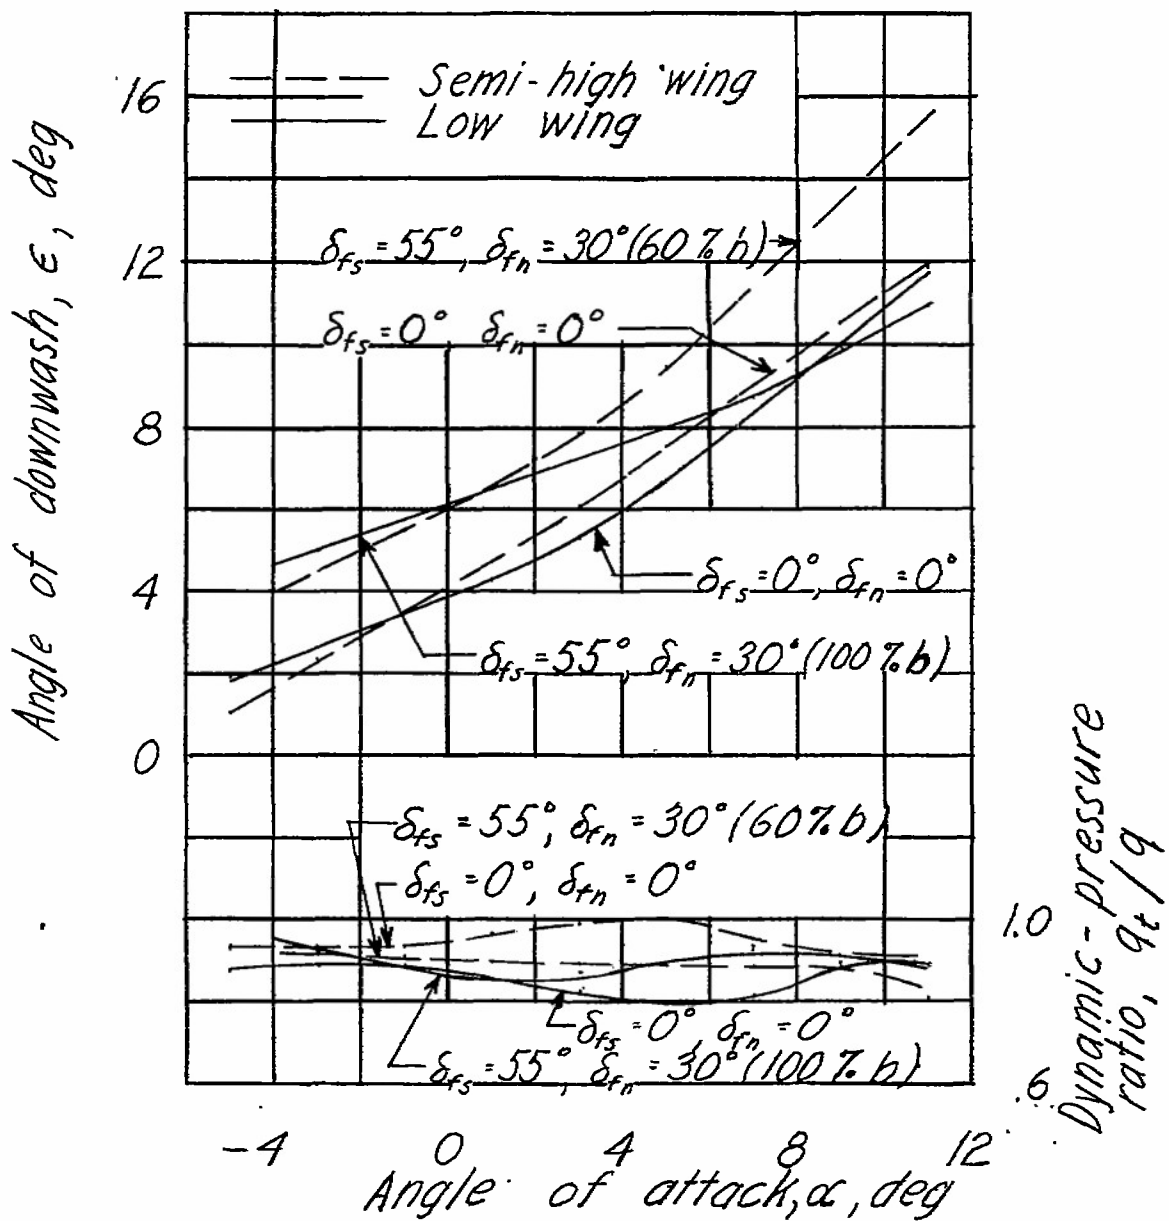 Semi-high wing
Low wing
16
12
8
4
0
Angle of downwash, ϵ, deg
δfs = 55°, δfn = 30° (60% b)
δfs = 0° δfn = 0°
δfs = 0°, δfn = 0°
δfs = 55°, δfn = 30° (100% b)
δfs = 55°, δfn = 30° (60% b)
δfs = 0°, δfn = 0°
δfs = 0°, δfn = 0°
δfs = 55°, δfn = 30° (100% b)
1.0
.6
Dynamic-pressure
ratio, qt/q
-4 0 4 8 12
Angle of attack, α, deg